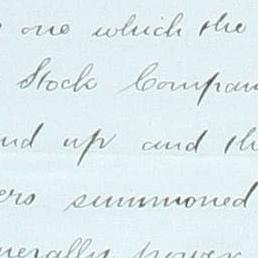 one which the
Stock Compan
nd up and th
ers summoned
nerally power